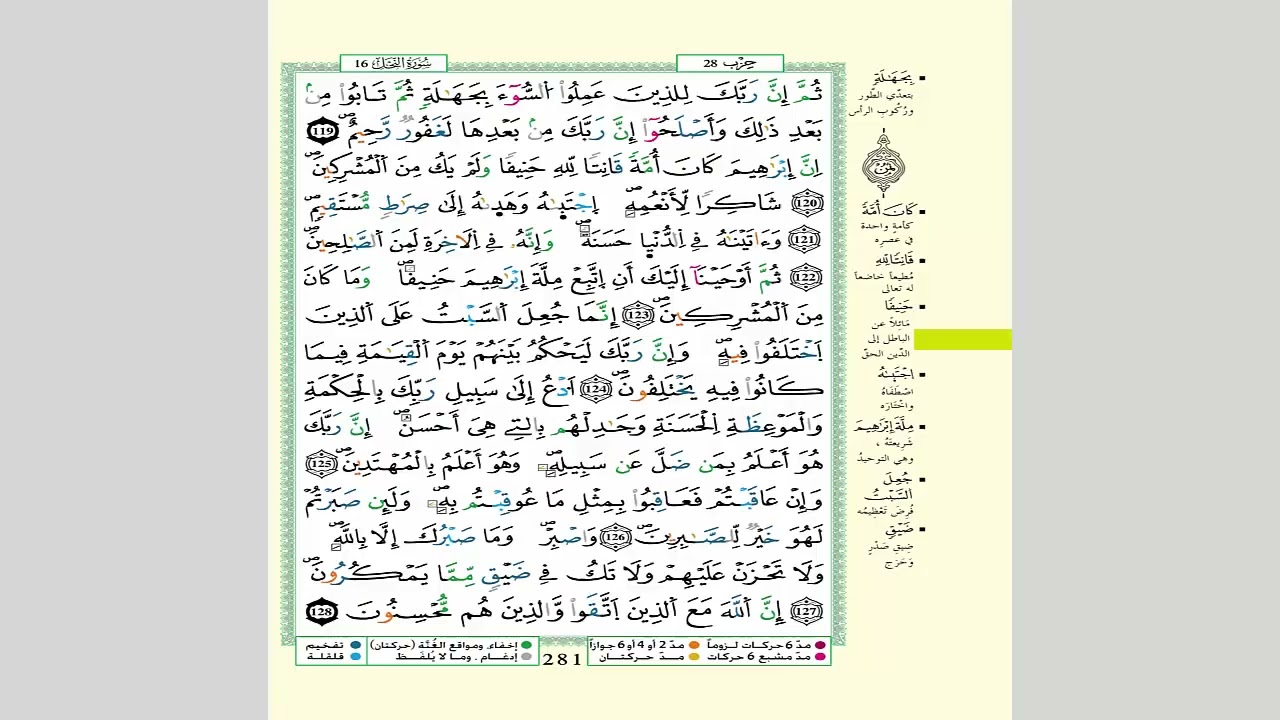 سُورَةُ النَّحْل 16
حِزْب 28
ثُمَّ إِنَّ رَبَّكَ لِلذِينَ عَمِلُوا۟ السُّوٓءَ بِجَهَٰلَةٖ ثُمَّ تَابُوا۟ مِنۢ
بَعْدِ ذَٰلِكَ وَأَصْلَحُوٓا۟ إِنَّ رَبَّكَ مِنۢ بَعْدِهَا لَغَفُورٞ رَّحِيمٌۖ 119
اِنَّ إِبْرَٰهِيمَ كَانَ أُمَّةٗ قَانِتٗا لِّلهِ حَنِيفٗا وَلَمْ يَكُ مِنَ اَلْمُشْرِكِينَۖ
120 شَاكِرٗا لِّأَنْعُمِهِۖ اِجْتَبَىٰهُ وَهَدَىٰهُ إِلَىٰ صِرَٰطٖ مُّسْتَقِيمٖۖ
121 وَءَاتَيْنَٰهُ فِے اِلدُّنْيَا حَسَنَةٗۖ وَإِنَّهُۥ فِے اِلَاخِرَةِ لَمِنَ اَلصَّٰلِحِينَۖ
122 ثُمَّ أَوْحَيْنَآ إِلَيْكَ أَنِ اِتَّبِعْ مِلَّةَ إِبْرَٰهِيمَ حَنِيفٗاۖ وَمَا كَانَ
مِنَ اَلْمُشْرِكِينَۖ 123 إِنَّمَا جُعِلَ اَلسَّبْتُ عَلَى اَلذِينَ
اَخْتَلَفُوا۟ فِيهِۖ وَإِنَّ رَبَّكَ لَيَحْكُمُ بَيْنَهُمْ يَوْمَ اَلْقِيَٰمَةِ فِيمَا
كَانُوا۟ فِيهِ يَخْتَلِفُونَۖ 124 اَدْعُ إِلَىٰ سَبِيلِ رَبِّكَ بِالْحِكْمَةِ
وَالْمَوْعِظَةِ اِلْحَسَنَةِ وَجَٰدِلْهُم بِالتِے هِيَ أَحْسَنُۖ إِنَّ رَبَّكَ
هُوَ أَعْلَمُ بِمَن ضَلَّ عَن سَبِيلِهِۦۖ وَهُوَ أَعْلَمُ بِالْمُهْتَدِينَۖ 125
وَإِنْ عَاقَبْتُمْ فَعَاقِبُوا۟ بِمِثْلِ مَا عُوقِبْتُم بِهِۦۖ وَلَئِن صَبَرْتُمْ
لَهُوَ خَيْرٞ لِّلصَّٰبِرِينَۖ 126 وَاصْبِرْۖ وَمَا صَبْرُكَ إِلَّا بِاللَّهِۖ
وَلَا تَحْزَنْ عَلَيْهِمْ وَلَا تَكُ فِے ضَيْقٖ مِّمَّا يَمْكُرُونَۖ
127 إِنَّ اَللَّهَ مَعَ اَلذِينَ اَتَّقَوا۟ وَّالذِينَ هُم مُّحْسِنُونَ 128
بِجَهَٰلَةٍ
بتعدّي الطّور
ورُكوبِ الرأس
ثمن
كَانَ أُمَّةً
كأمة واحدة
في عصره
قَانِتًا لِّلهِ
مُطيعاً خاضعاً
له تعالى
حَنِيفًا
مَائلاً عن
الباطل إلى
الدّين الحقّ
اِجْتَبَىٰهُ
اصْطفاهُ
واخْتارَه
مِلَّةَ إِبْرَٰهِيمَ
شَرِيعَتَهُ ،
وهي التوحيدُ
جُعِلَ
اَلسَّبْتُ
فُرِضَ تَعْظِيمُه
ضَيْقٍ
ضِيقِ صَدْرٍ
وَحَرَجٍ
مدّ 6 حركات لزوماً
مدّ 2 أو 4 أو 6 جوازاً
مدّ مشبع 6 حركات
مدّ حركتان
281
إخفاء، ومواقع الغُنَّة (حركتان)
إدغام ، وما لا يُلفَظ
تفخيم
قلقلة